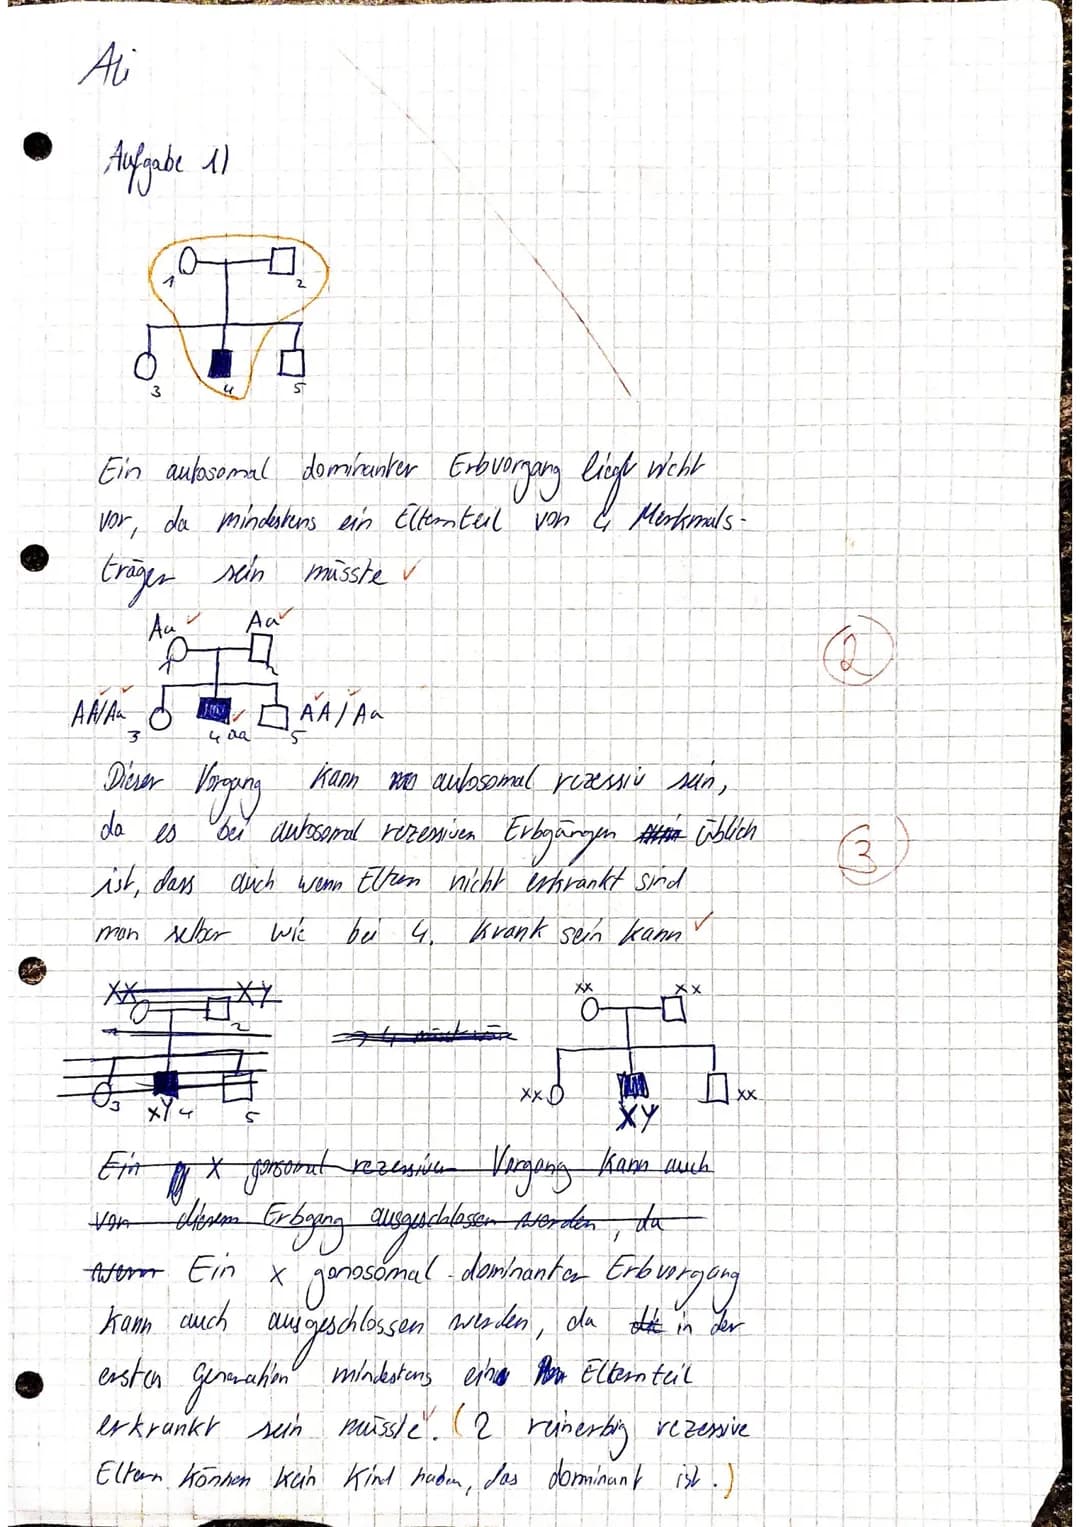 Ali
Aufgabe 1)
1 2
3 4 5
Ein autosomal dominanter Erbvorgang liegt nicht
vor, da mindestens ein Elternteil von 4 Merkmals-
träger sein müsste ✓
Aa ✓ Aa ✓
1 2
AA/Aa AA/Aa
3 4 aa 5
2
Dieser Vorgang kann autosomal rezessiv sein,
da es bei autosomal rezessiven Erbgängen üblich
ist, dass auch wenn Eltern nicht erkrankt sind
man selber wie bei 4. krank sein kann ✓
3
XX XY xx xx
2
3 XY 4 5 xx XY xx
Ein X gonosomal rezessiver Vorgang kann auch
von diesem Erbgang ausgeschlossen werden, da
wenn Ein x gonosomal-dominanter Erbvorgang
kann auch ausgeschlossen werden, da die in der
ersten Generation mindestens ein Elternteil
erkrankt sein müsste ✓. (2 reinerbig rezessive
Eltern können kein Kind haben, das dominant ist.)